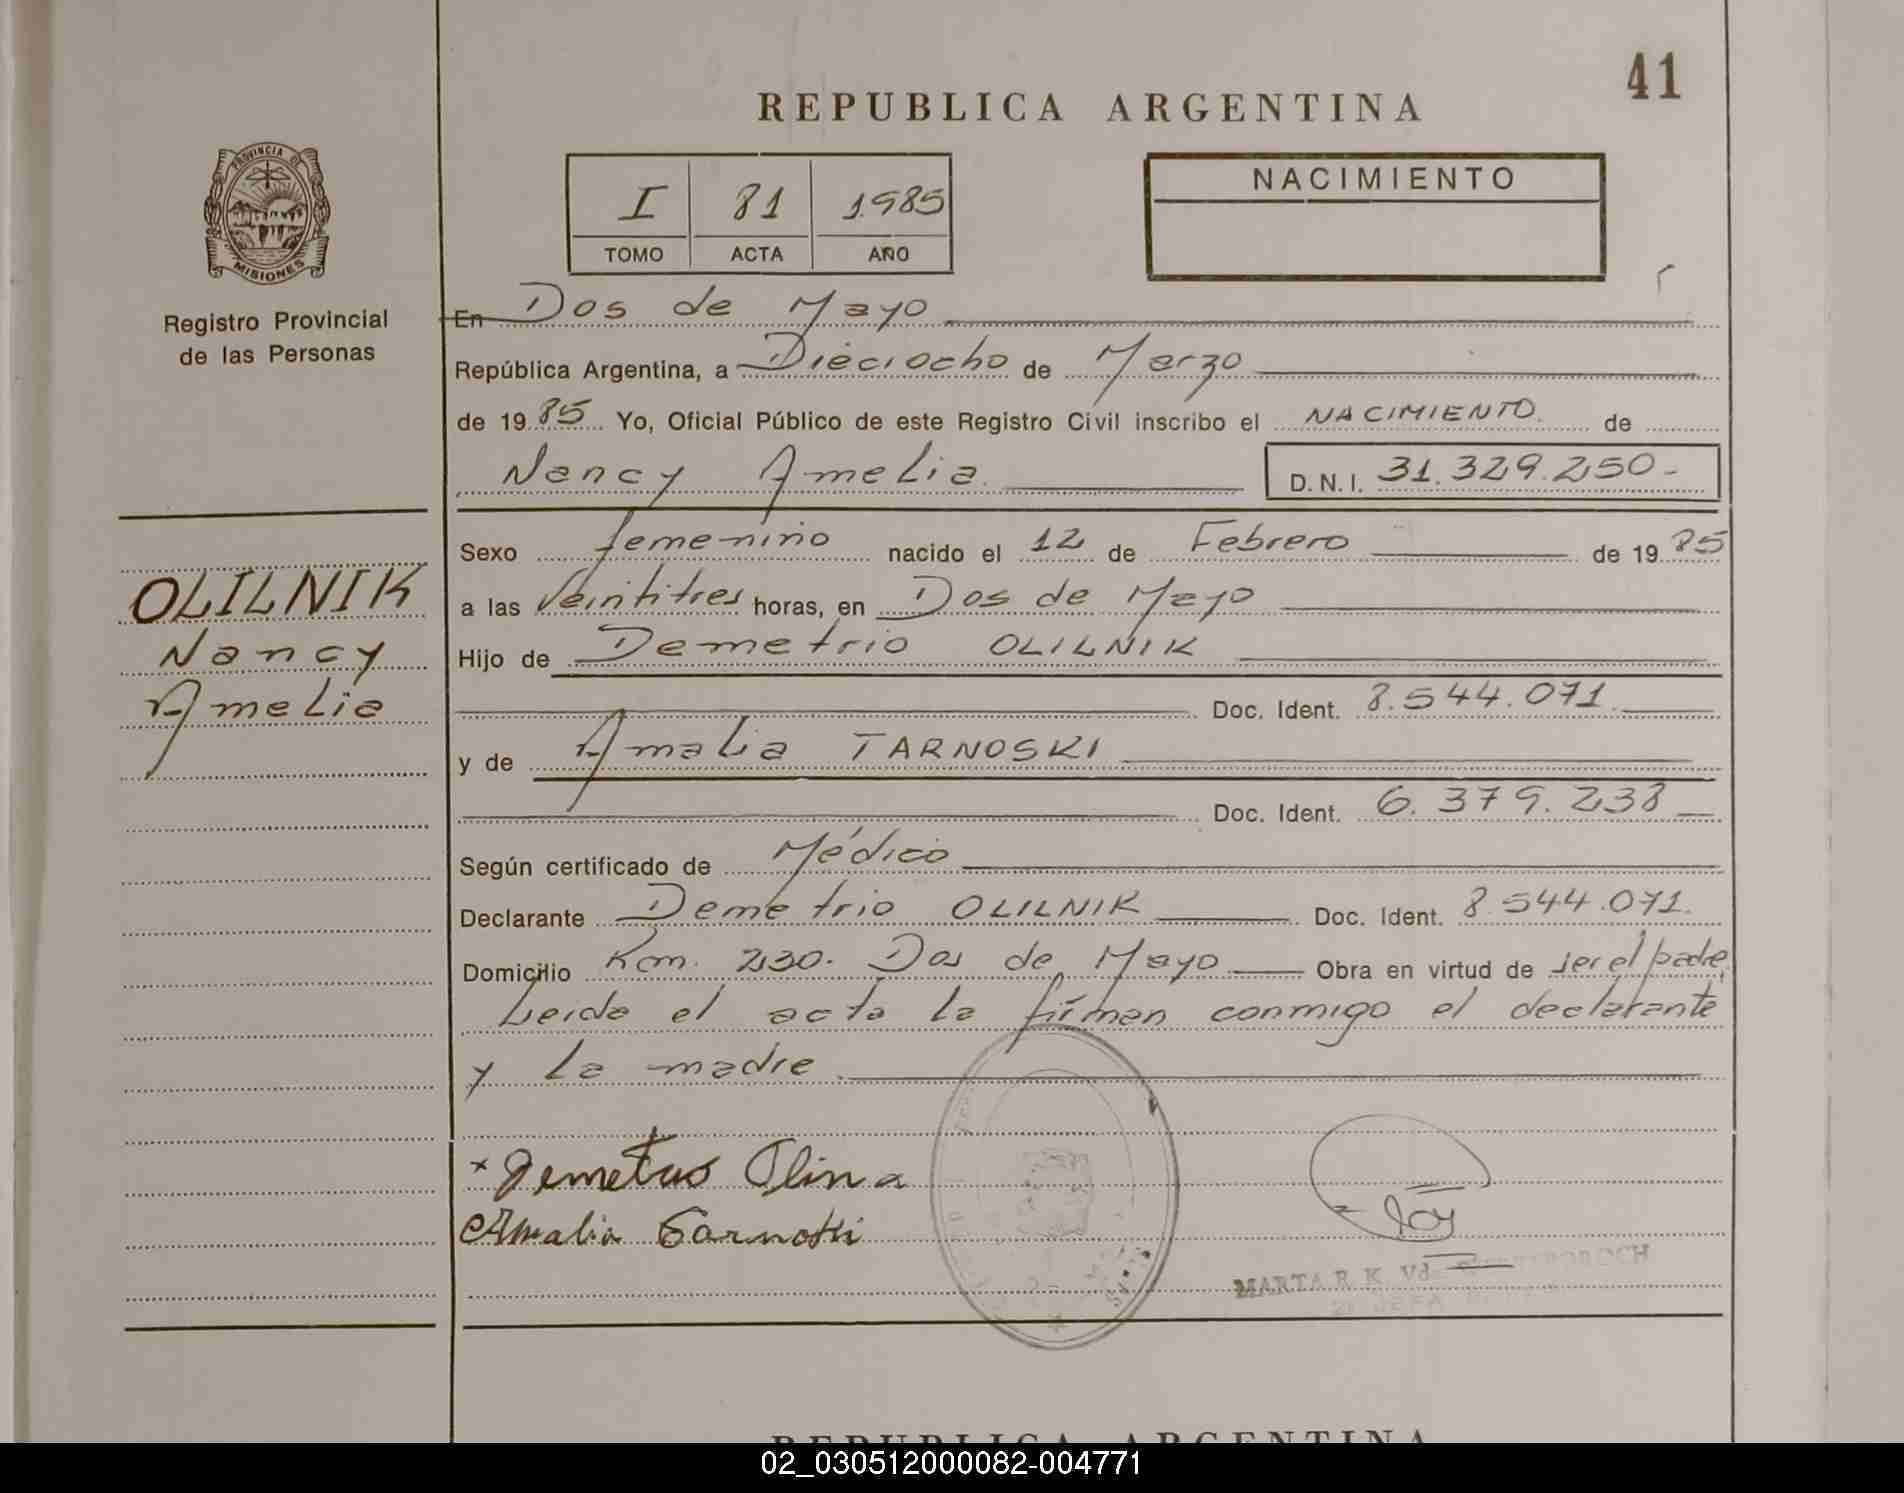 41
REPUBLICA ARGENTINA
PROVINCIA DE
MISIONES
Registro Provincial
de las Personas
I 81 1985
TOMO ACTA AÑO
NACIMIENTO
En Dos de Mayo
República Argentina, a Dieciocho de Marzo
de 19 85 Yo, Oficial Público de este Registro Civil inscribo el NACIMIENTO. de
Nancy Amelia D.N.I. 31.329.250-
OLILNIK
Nancy
Amelia
Sexo femenino nacido el 12 de Febrero de 19 85
a las Veintitres horas, en Dos de Mayo
Hijo de Demetrio OLILNIK
Doc. Ident. 8.544.071
y de Amalia TARNOSKI
Doc. Ident. 6.379.238
Según certificado de Médico
Declarante Demetrio OLILNIK Doc. Ident. 8.544.071.
Domicilio Km. 230. Dos de Mayo Obra en virtud de ser el padre,
Leida el acta la firman conmigo el declarante
y la madre
Amalia
MARTA R. K. Vd
REPUBLICA ARGENTINA
02_030512000082-004771